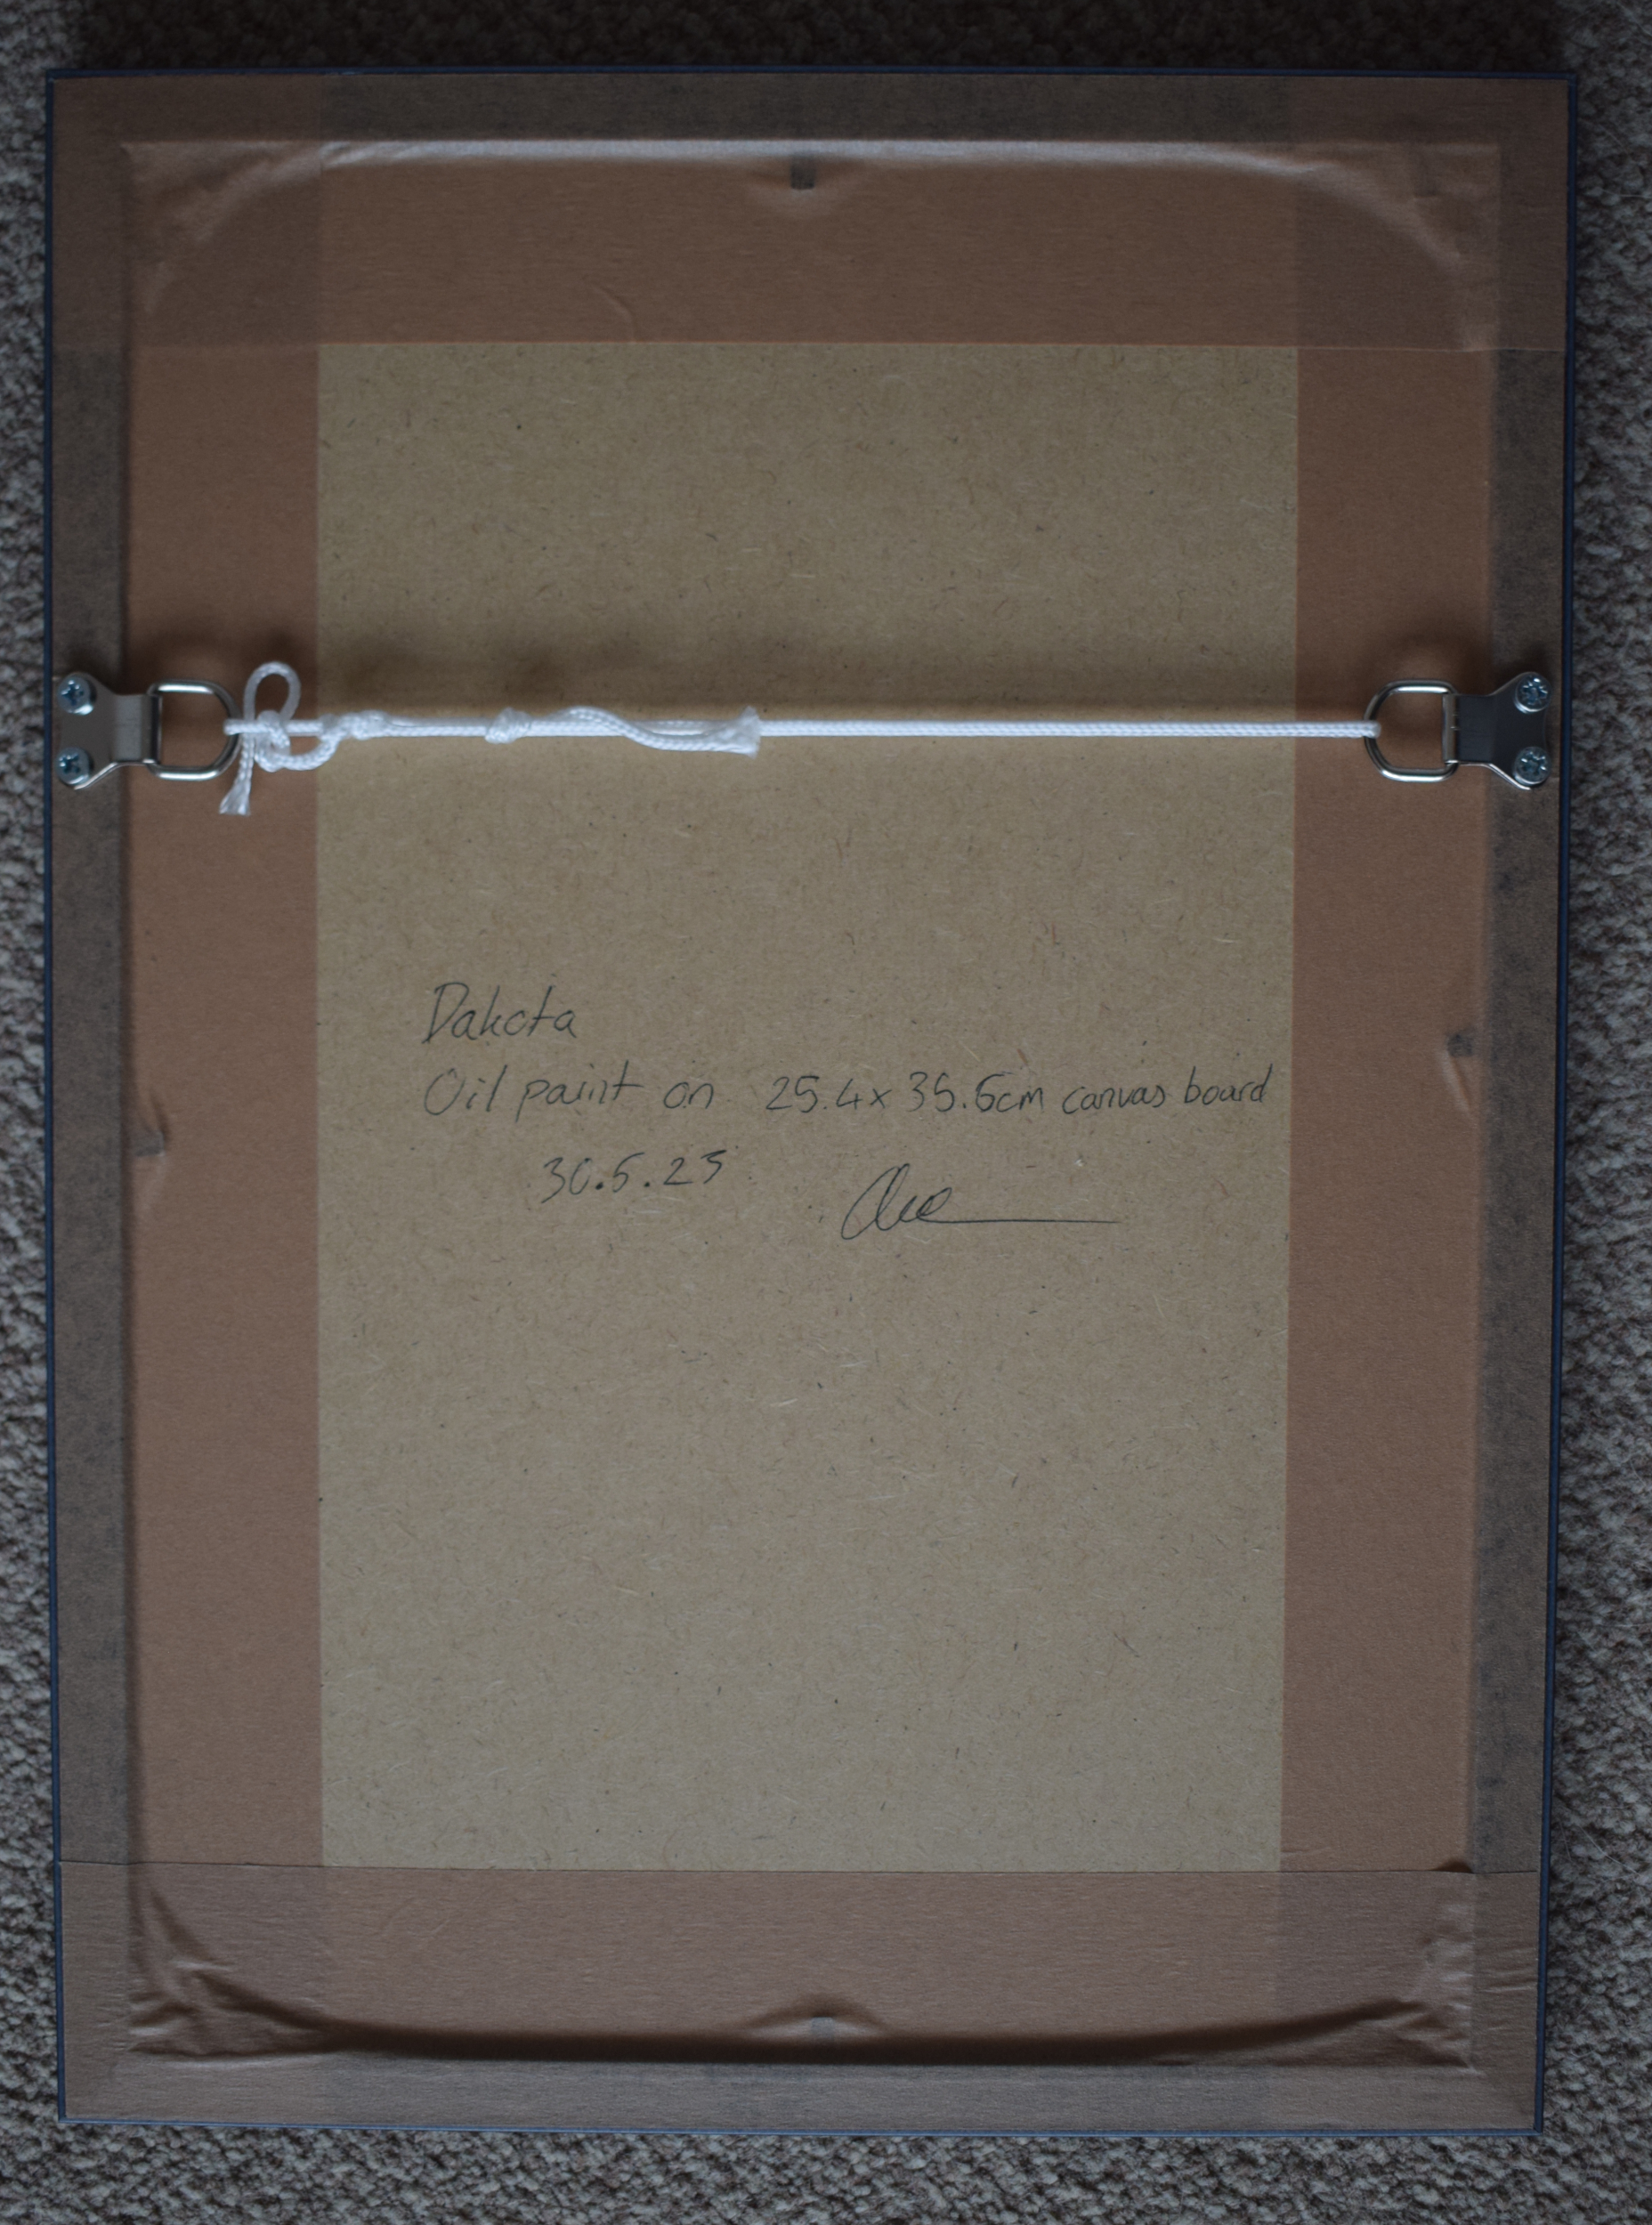 Dakota
Oil paint on 25.4x35.5cm canvas board
30.5.23